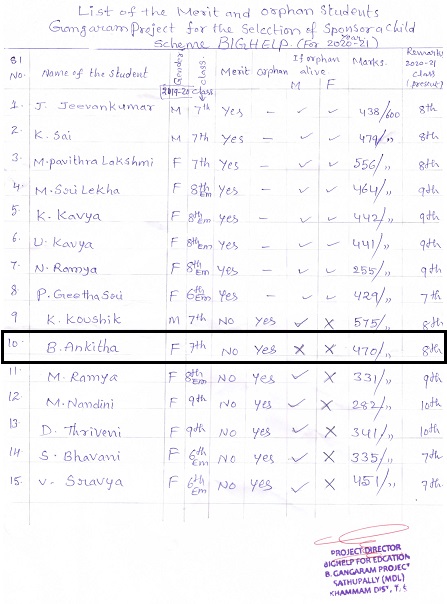 List of the Merit and orphan Students
Gangaram Project for the Selection of Sponsor a child
Scheme BIGHELP. (For year 2020-21)
Sl No. Name of the Student Gender class. Merit orphan If orphan alive Marks. Remarks 2020-21 Class (present)
2019-20 class M F
1. J. Jeevankumar M 7th Yes – ✓ ✓ 438/600 8th
2 K. Sai M 7th Yes – ✓ ✓ 479/,, 8th
3. M. pavithra Lakshmi F 7th Yes – ✓ ✓ 556/,, 8th
4. M. Sri Lekha F 8th Em Yes – ✓ ✓ 464/,, 9th
5 K. Kavya F 8th Em Yes – ✓ ✓ 442/,, 9th
6. U. Kavya F 8th Em Yes – ✓ ✓ 441/,, 9th
7. N. Ramya F 8th Em Yes – ✓ ✓ 255/,, 9th
8 P. Geetha Sri F 6th Em Yes – ✓ ✓ 429/,, 7th
9 K. Koushik M 7th NO Yes ✓ X 575/,, 8th
10. B. Ankitha F 7th No Yes X X 470/,, 8th
11. M. Ramya F 8th Em NO Yes ✓ X 331/,, 9th
12 M. Nandini F 9th No Yes ✓ X 282/,, 10th
13. D. Thriveni F 9th NO Yes ✓ X 341/,, 10th
14 S. Bhavani F 6th Em NO Yes ✓ X 335/,, 7th
15. V. Sravya F 6th Em NO Yes ✓ X 451/,, 7th
PROJECT DIRECTOR
BIGHELP FOR EDCATION
B. GANGARAM PROJECT
SATHUPALLY (MDL)
KHAMMAM DIST, T. S